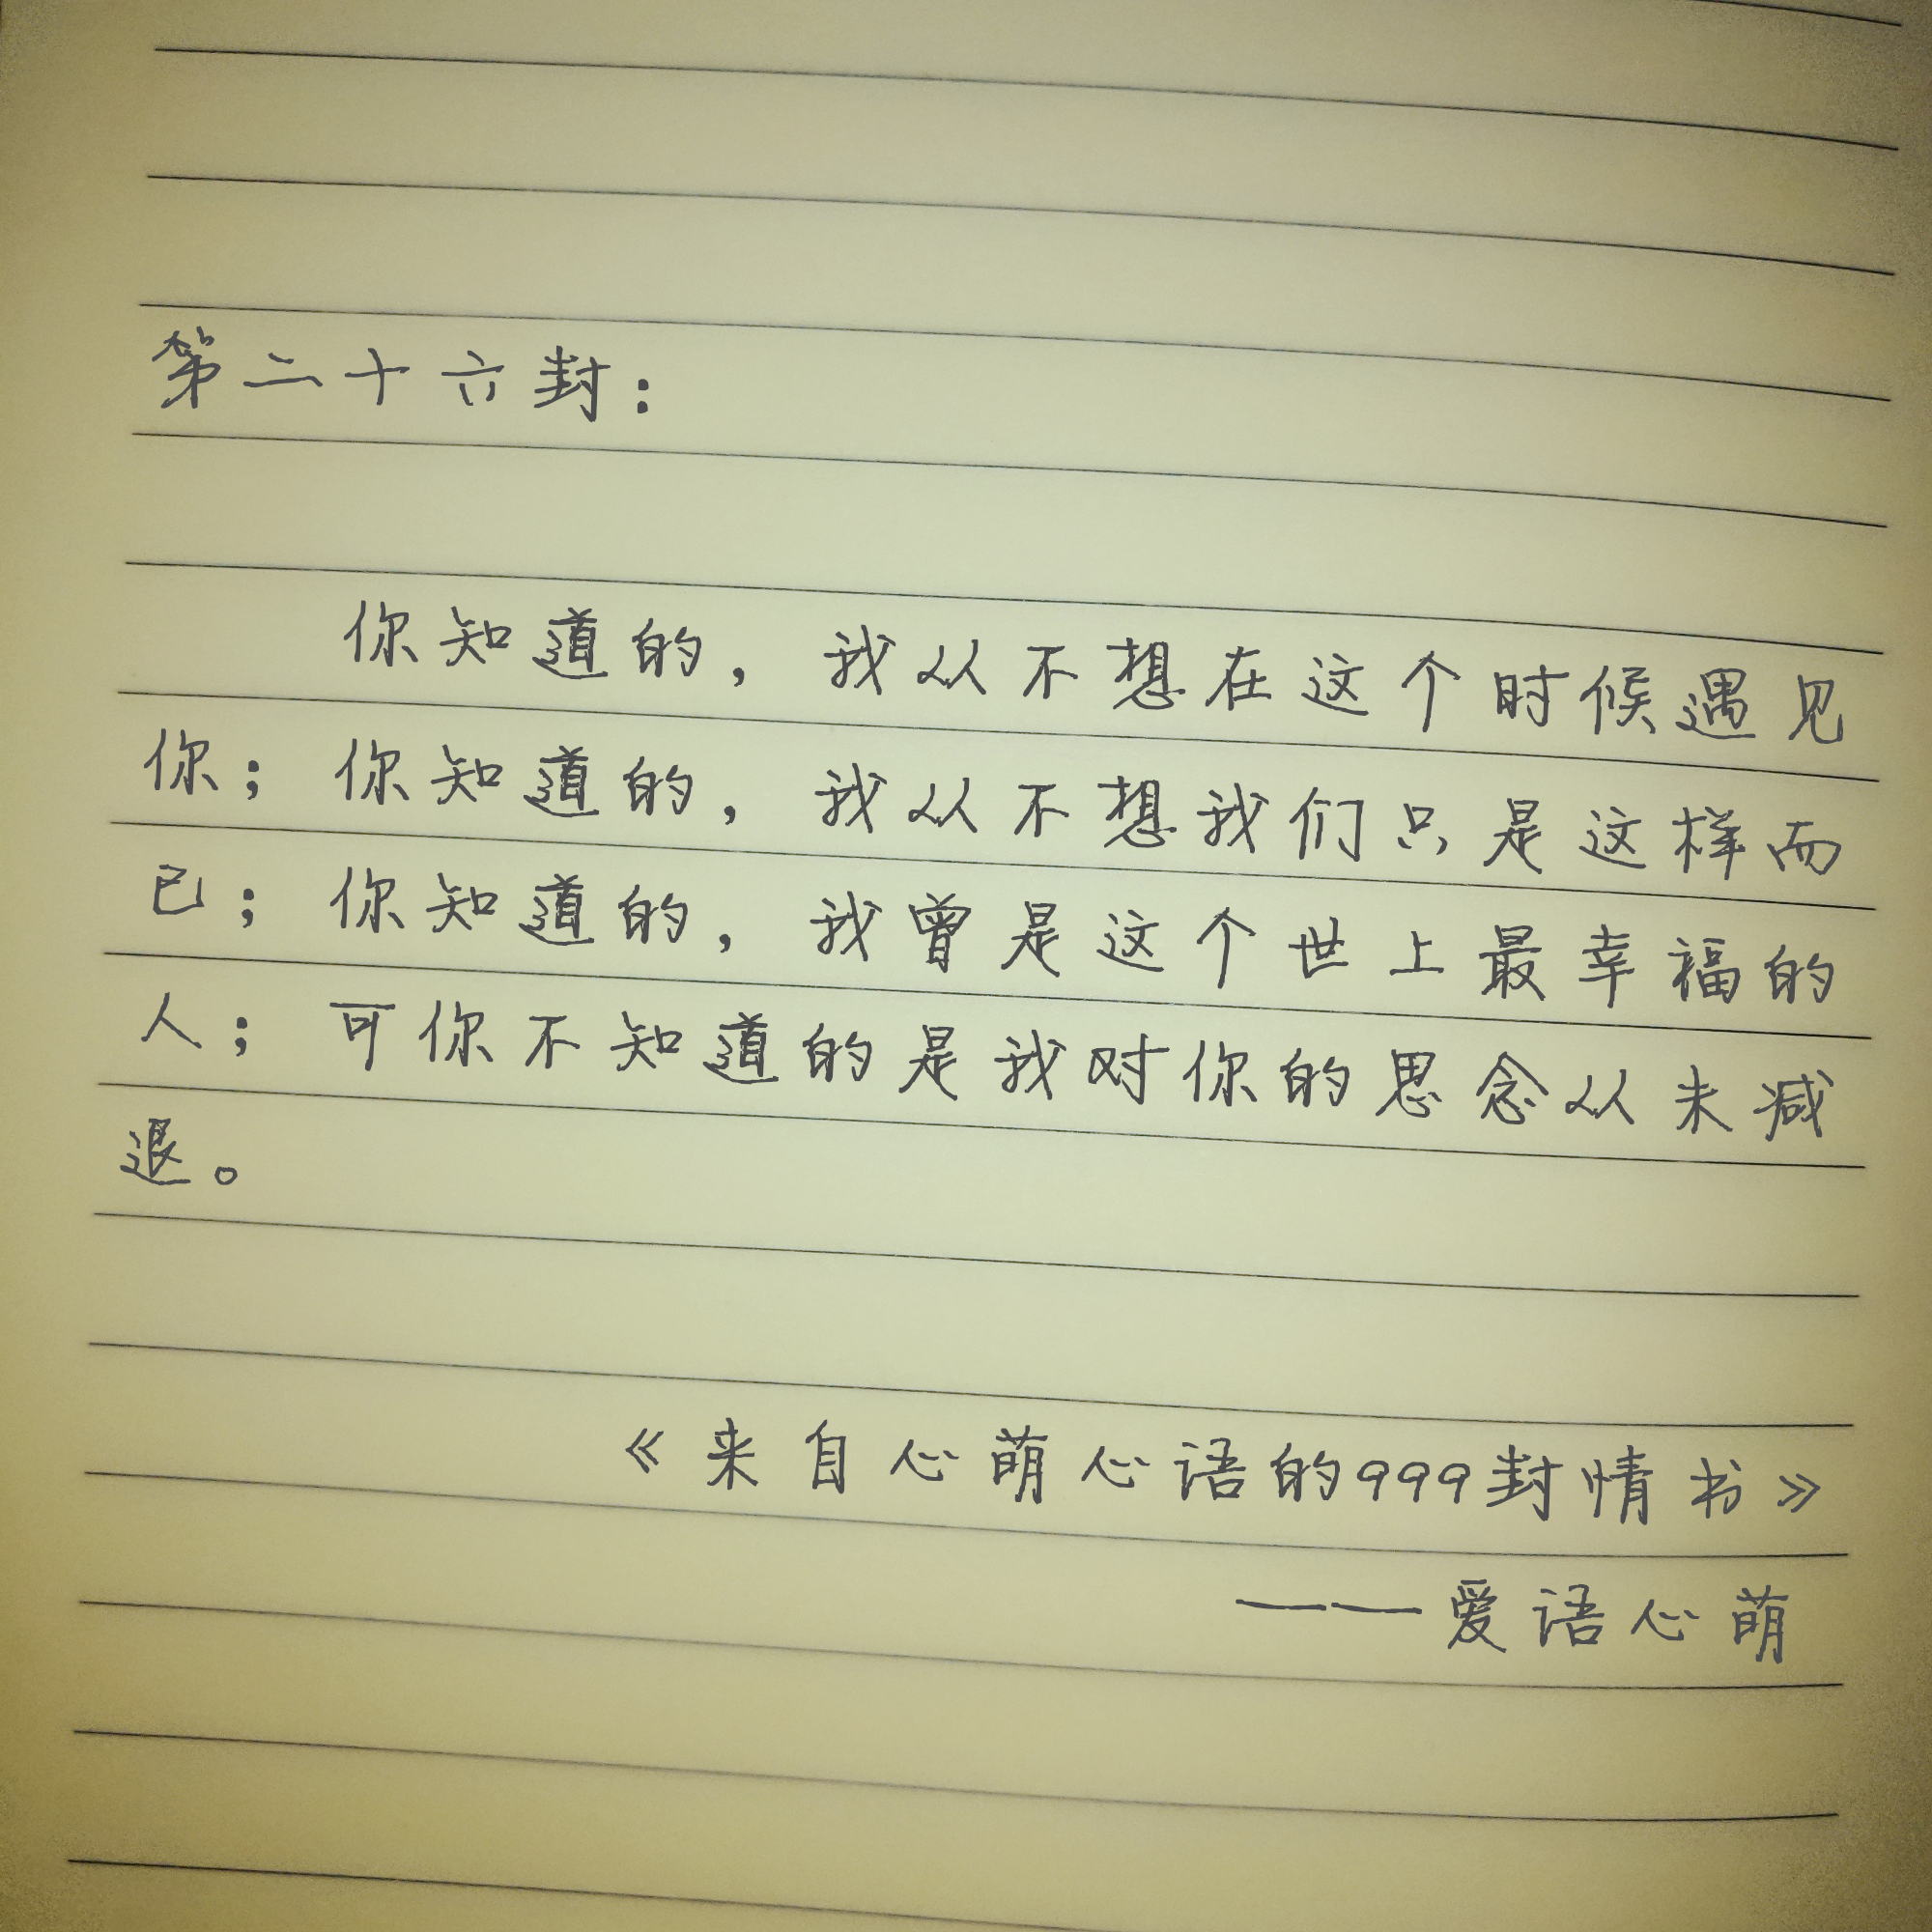 第二十六封：
你知道的，我从不想在这个时候遇见
你；你知道的，我从不想我们只是这样而
已；你知道的，我曾是这个世上最幸福的
人；可你不知道的是我对你的思念从未减
退。
《来自心萌心语的999封情书》
——爱语心萌